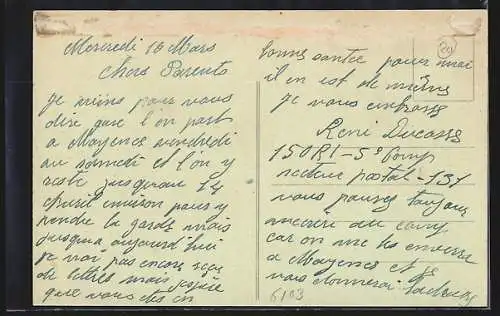 Mercredi 16 Mars
Chers Parents
Je viens pour vous
dire que l'on part
a Mayence vendredi
ou samedi et l'on y
reste jusqu'au 14
Avril environ pour y
prendre la garde mais
jusqua aujourd'hui
je n'ai pas encore reçu
de lettres mais j'espère
que vous êtes en
bonne santée pour moi
il en est de même
Je vous embrasse
René Ducasse
150 RI - 5e Comp
secteur postal - 131
vous pouvez toujours
au camp
car on me les enverra
a Mayence et je
vous donnerai
6103